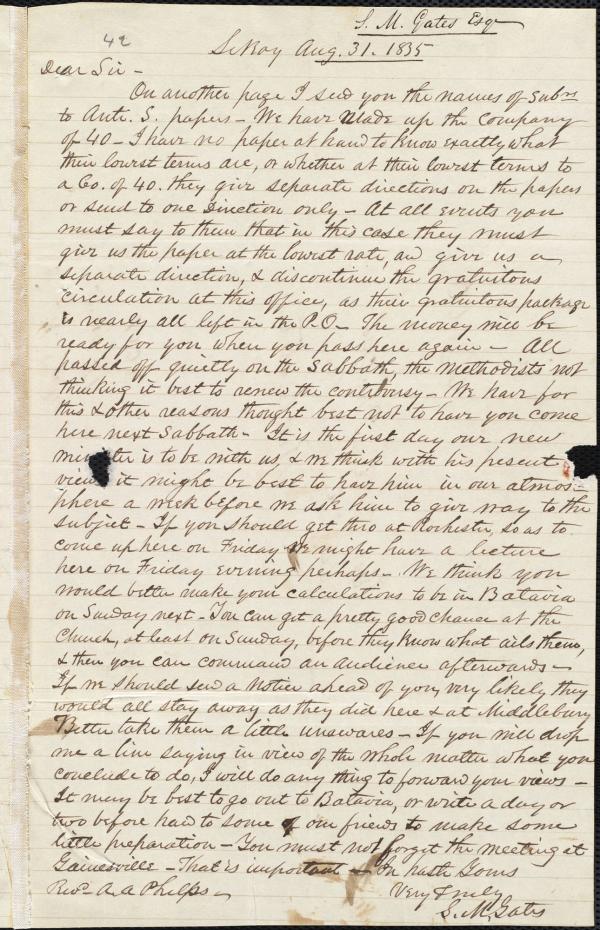 42
S. M. Gates Esq
LeRoy Aug. 31. 1835
Dear Sir -
On another page I send you the names of Subrs
to Anti. S. papers - We have made up the company
of 40 - I have no paper at hand to know exactly what
their lowest terms are, or whether at their lowest terms to
a Co. of 40. they give separate directions on the papers
or send to one Direction only - At all events you
must say to them that in this case they must
give us the paper at the lowest rate, and give us a
separate direction, & discontinue the gratuitous
circulation at this office, as their gratuitous package
is nearly all left in the P.O. - The money will be
ready for you when you pass here again - All
passed off quietly on the Sabbath, the Methodists not
thinking it best to renew the controversy - We have for
this & other reasons thought best not to have you come
here next Sabbath - It is the first day our new
minister is to be with us, & we think with his present
views it might be best to have him in our atmos-
phere a week before we ask him to give way to the
subject - If you should get thro at Rochester, so as to
come up here on Friday we might have a lecture
here on Friday evening perhaps - We think you
would better make your calculations to be in Batavia
on Sunday next - You can get a pretty good chance at the
Church, at least on Sunday, before they know what ails them,
& then you can command an audience afterwards -
If we should send a Notice ahead of you, very likely they
would all stay away as they did here & at Middlebury
Better take them a little unawares - If you will drop
me a line saying in view of the whole matter what you
conclude to do, I will do any thing to forward your views -
It may be best to go out to Batavia, or write a day or
two before hand to some of our friends to make some
little preparation - You must not forget the meeting at
Gainesville - That is important - In haste Yours
Revd A. A Phelps - Very truly
S. M. Gates